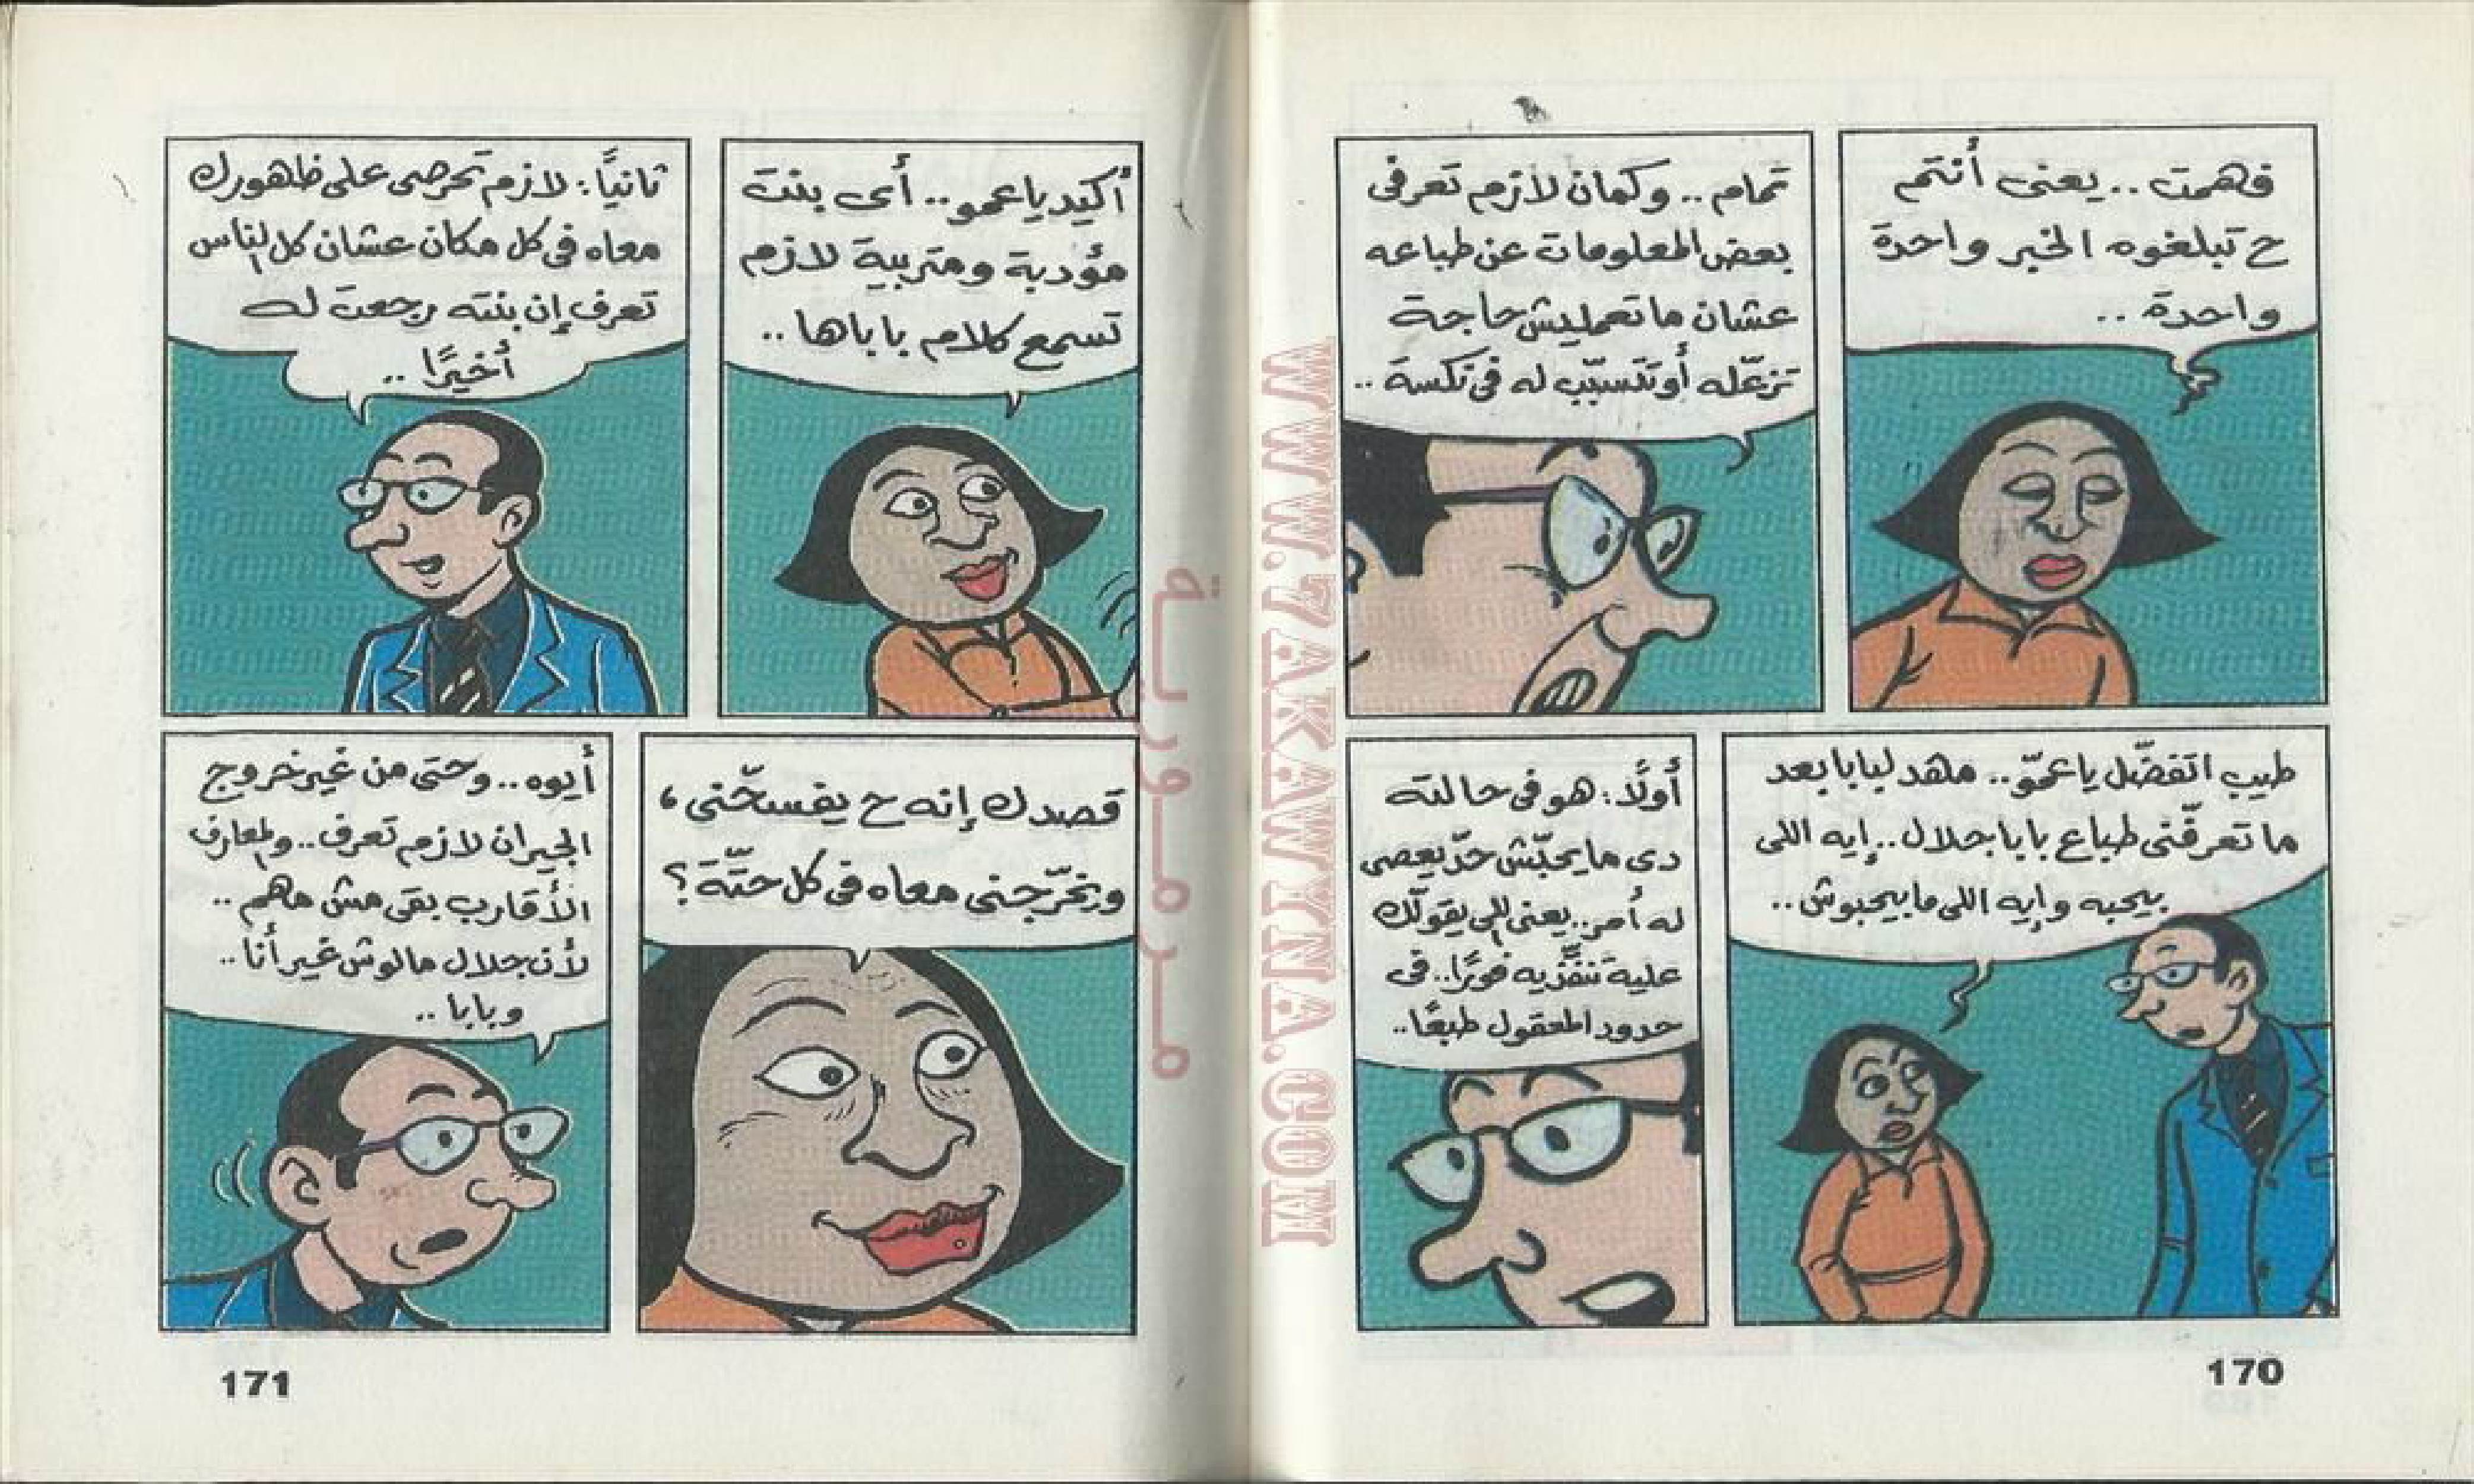 فاهمت .. يعنى أنتم
ح تبلغوه الخبر واحدة
واحدة ..
تمام .. وكمان لازم تعرفى
بعض المعلومات عن طباعه
عشان ماتعمليش حاجة
تزعّله أو تتسبّب له فى نكسة ..
طيب اتفضّل يا عمّو .. مهد لبابا بعد
ما تعرفّنى طباع بابا جلال .. إيه اللى
بيحبه وإيه اللى مابيحبوش ..
أولًا : هو فى حالته
دى مايحبّش حدّ يعصى
له أمر .. يعنى اللى يقولّك
عليه تنفّذيه فورًا .. فى
حدود المعقول طبعًا ..
170
أكيد يا عمو .. أى بنت
مؤدبة ومتربية لازم
تسمع كلام باباها ..
ثانيًا : لازم تحرصى على ظهورك
معاه فى كل مكان عشان كل الناس
تعرف إن بنته رجعت له
أخيرًا ..
قصدك إنه ح يفسحّنى ،
ويخرّجنى معاه فى كل حتّة ؟
أيوه .. وحتى من غير خروج
الجيران لازم تعرف .. والمعارف
الأقارب بقى مش مهم ..
لأن جلال مالوش غير أنا ..
وبابا ..
171
مرمورية
WWW.7AKAWYNA.COM